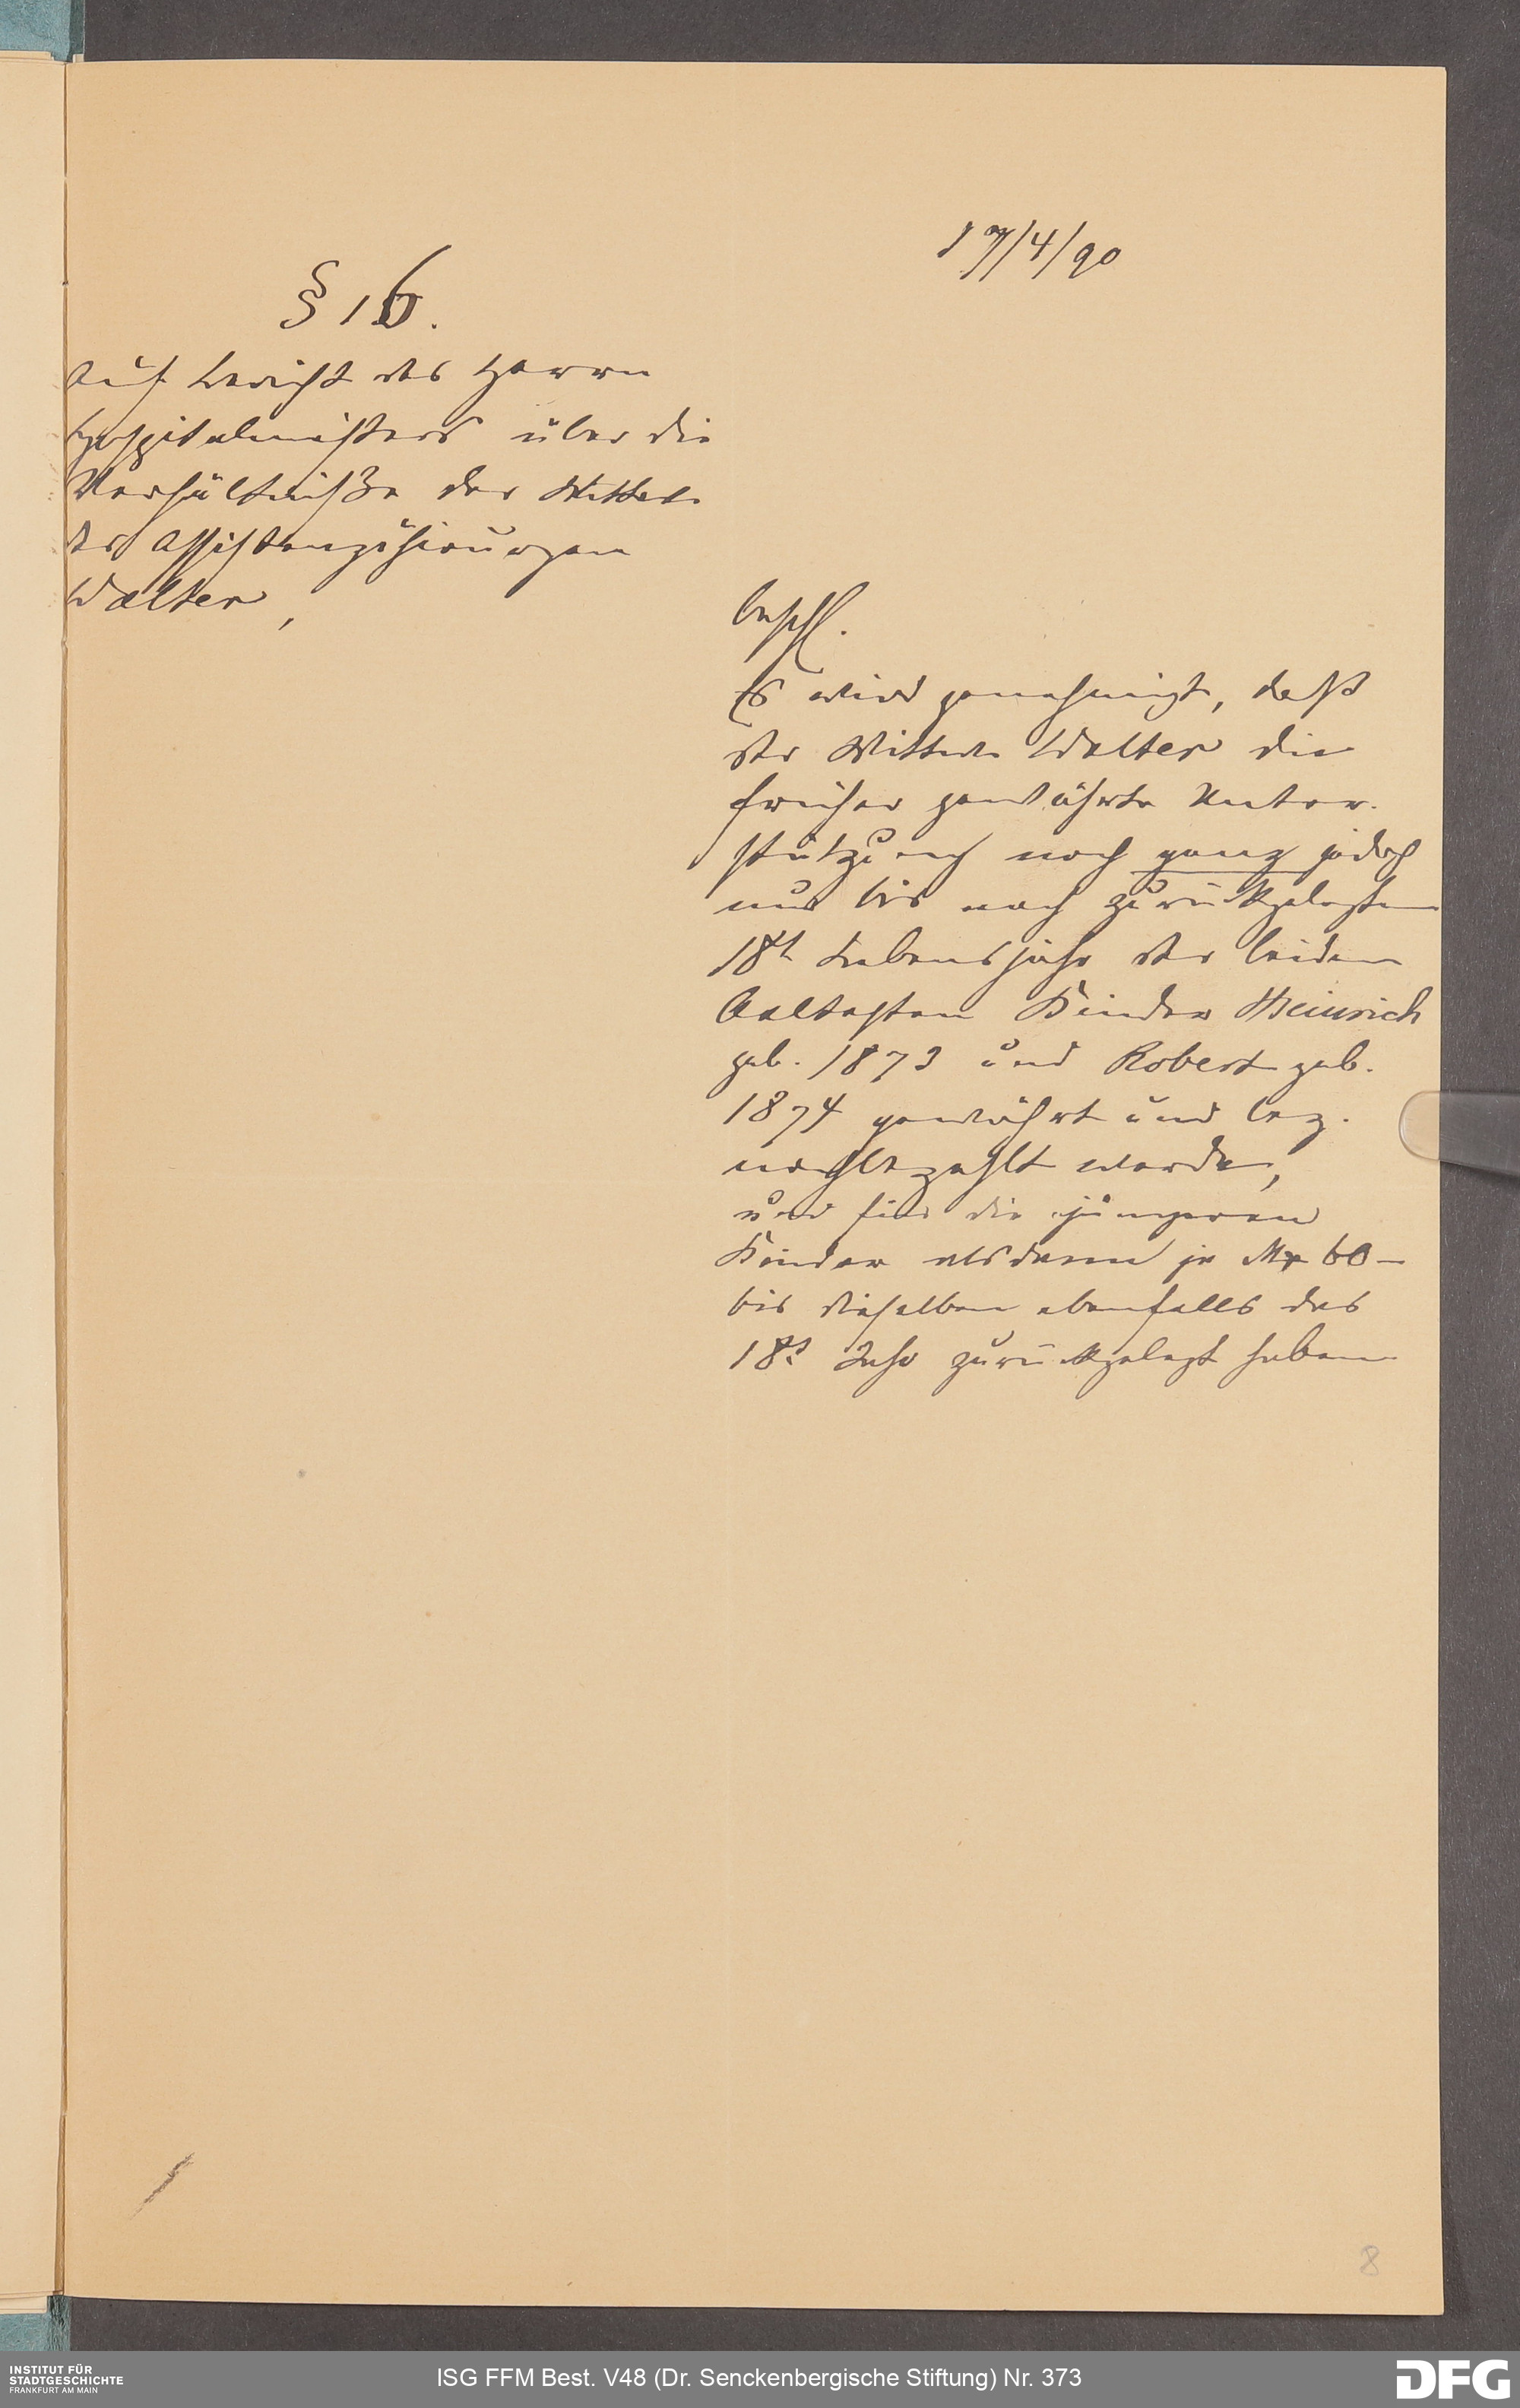 17/4/90
§ 16.
Auf Bericht des Herrn
Hospitalmeisters über die
Verhältniße der Wittwe
des Assistenzchirurgen
Walter,
beschl.
Es wird genehmigt, daß
der Wittwe Walter die
früher gewährte Unter-
stützung noch ganz jedoch
nur bis nach zurückgelegtem
18t Lebensjahr der beiden
Aeltesten Kinder Heinrich
geb. 1873 und Robert geb.
1874 gewährt und bez.
nachbezahlt werde,
und für die jüngeren
Kinder alsdann je Mk 60-
bis dieselben ebenfalls das
18t Jahr zurückgelegt haben
8
INSTITUT FÜR
STADTGESCHICHTE
FRANKFURT AM MAIN
ISG FFM Best. V48 (Dr. Senckenbergische Stiftung) Nr. 373
DFG